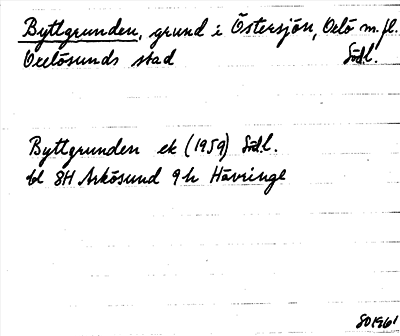 Byttgrunden, grund i Östersjön, Oxlö m.fl.
Oxelösunds stad Södl.
Byttgrunden ek (1959) Södl.
bl 8H Arkösund 9h Hävringe